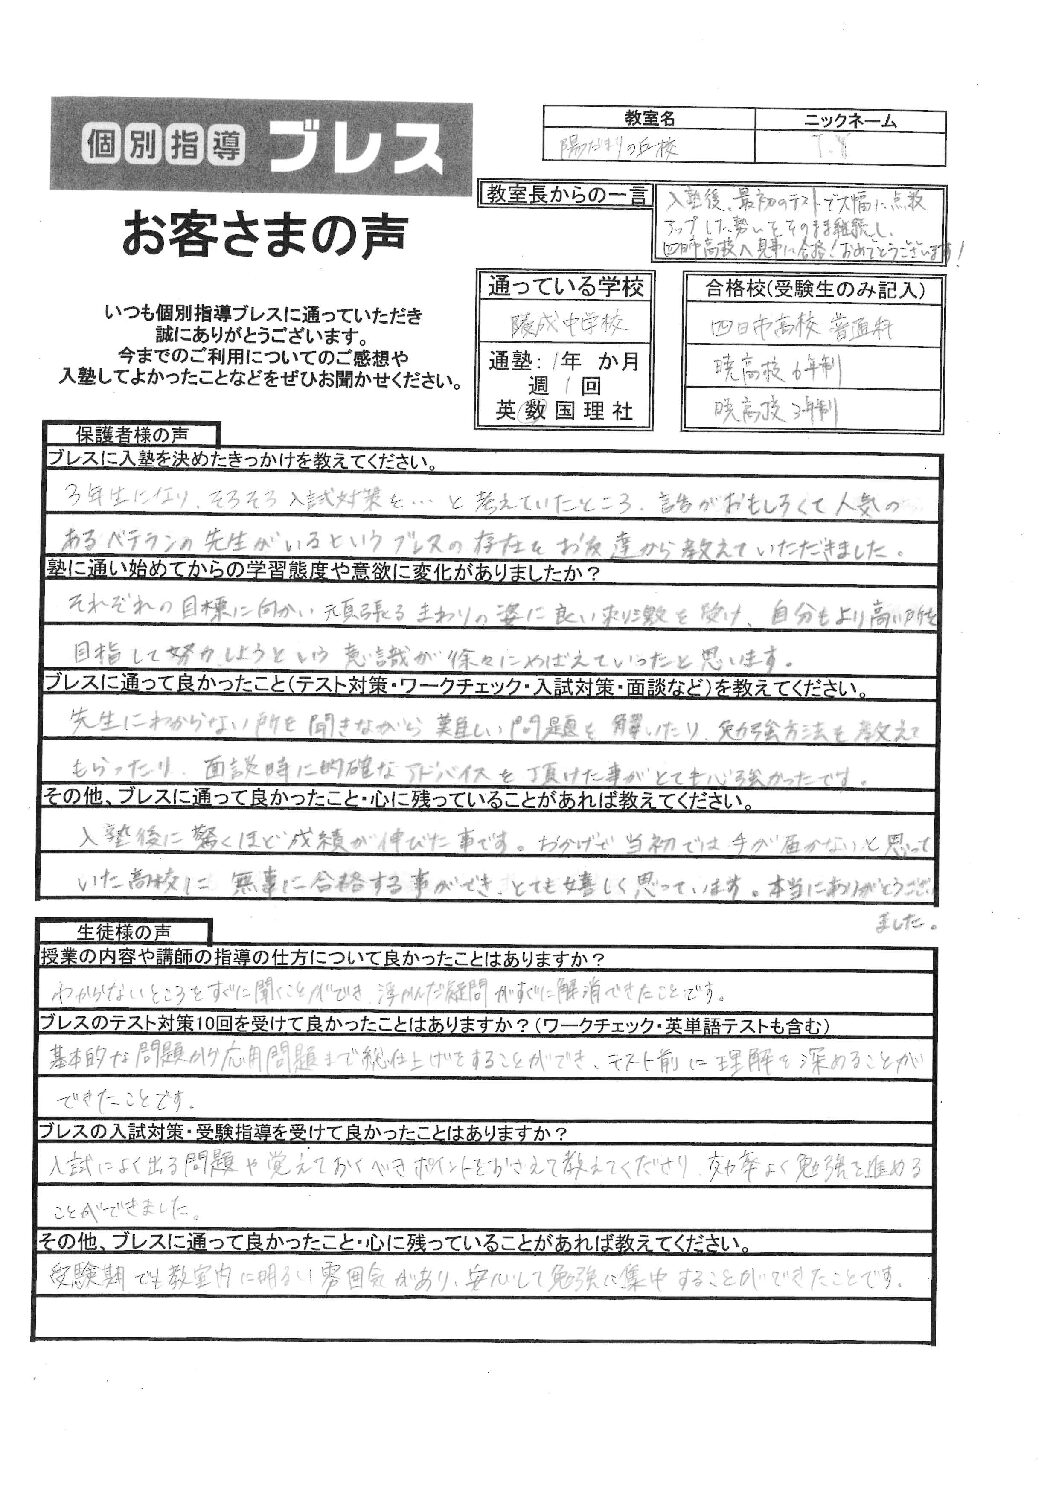 個別指導 ブレス
お客さまの声
いつも個別指導ブレスに通っていただき
誠にありがとうございます。
今までのご利用についてのご感想や
入塾してよかったことなどをぜひお聞かせください。
教室名 ニックネーム
陽だまりの丘校
教室長からの一言
入塾後、最初のテストで大幅に点数
アップした勢いをそのまま継続し、
四日市高校へ見事に合格!おめでとうございます!
通っている学校
陵成中学校
通塾:1年 か月
週1回
英数国理社
合格校(受験生のみ記入)
四日市高校 普通科
暁高校6年制
暁高校3年制
保護者様の声
ブレスに入塾を決めたきっかけを教えてください。
3年生になり、そろそろ入試対策を…と考えていたところ、話がおもしろくて人気の
あるベテランの先生がいるというブレスの存在をお友達から教えていただきました。
塾に通い始めてからの学習態度や意欲に変化がありましたか?
それぞれの目標に向かい頑張るまわりの姿に良い刺激を受け、自分もより高い所を
目指して努力しようという意識が徐々にめばえていったと思います。
ブレスに通って良かったこと(テスト対策・ワークチェック・入試対策・面談など)を教えてください。
先生にわからない所を聞きながら難しい問題を解いたり、勉強方法を教えて
もらったり、面談時に的確なアドバイスを頂けた事がとても心強かったです。
その他、ブレスに通って良かったこと・心に残っていることがあれば教えてください。
入塾後に驚くほど成績が伸びた事です。おかげで当初では手が届かないと思って
いた高校に無事に合格する事ができ、とても嬉しく思っています。本当にありがとうござい
ました。
生徒様の声
授業の内容や講師の指導の仕方について良かったことはありますか?
わからないところをすぐに聞くことができ、浮かんだ疑問がすぐに解消できたことです。
ブレスのテスト対策10回を受けて良かったことはありますか?(ワークチェック・英単語テストも含む)
基本的な問題から応用問題まで総仕上げをすることができ、テスト前に理解を深めることが
できたことです。
ブレスの入試対策・受験指導を受けて良かったことはありますか?
入試によく出る問題や覚えておくべきポイントをおさえて教えてくださり、効率よく勉強を進める
ことができました。
その他、ブレスに通って良かったこと・心に残っていることがあれば教えてください。
受験期でも教室内に明るい雰囲気があり、安心して勉強に集中することができたことです。